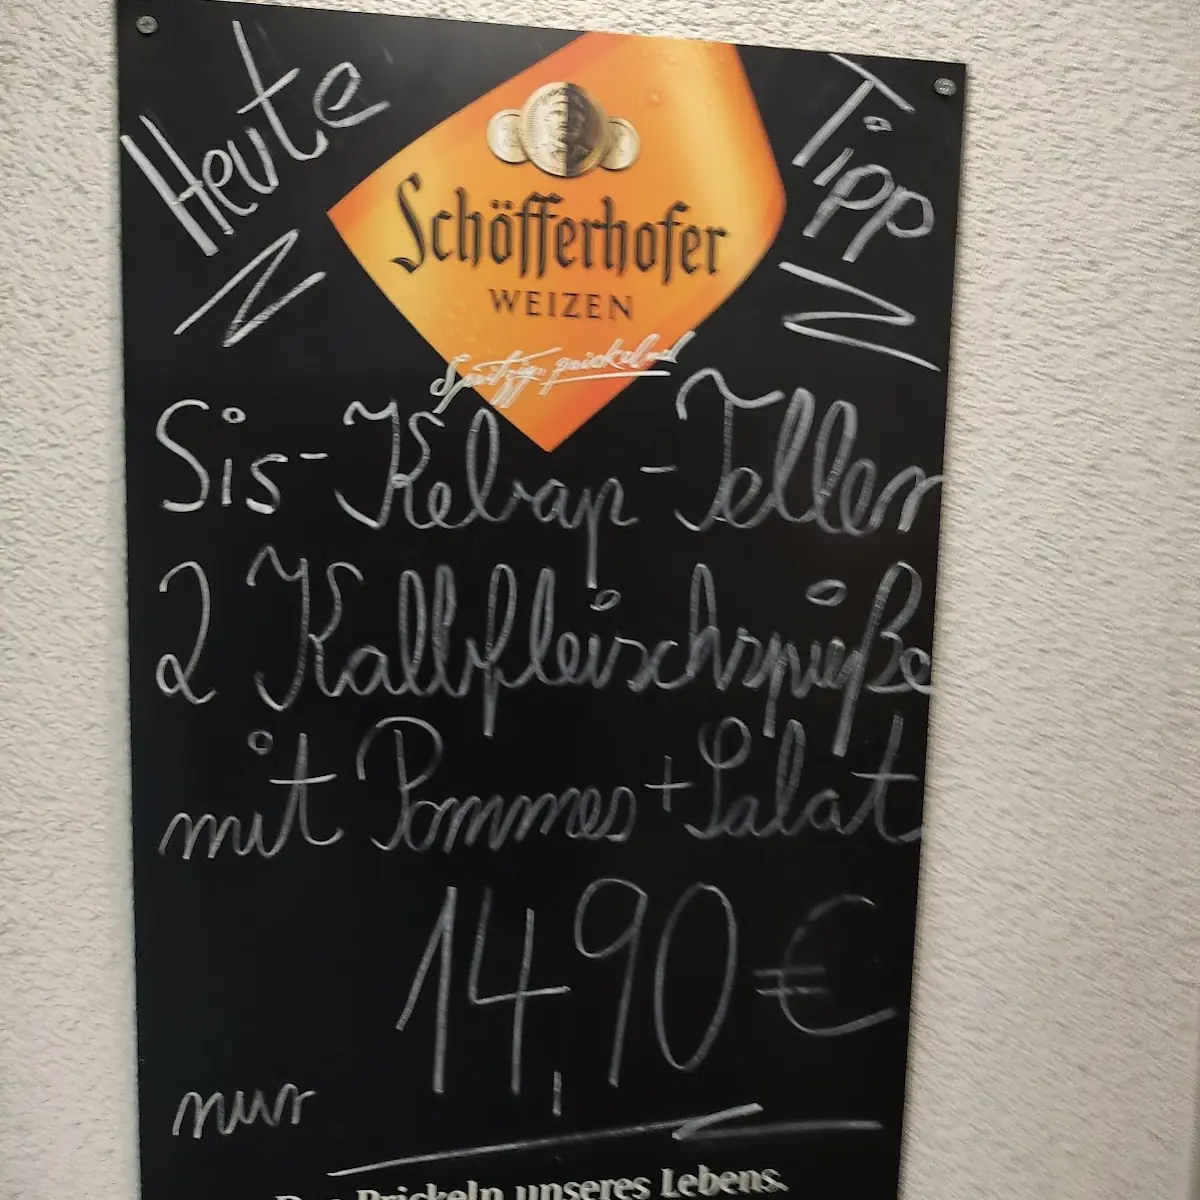 Heute
Tipp
Schöfferhofer
WEIZEN
Spritzig, prickelnd
Sis-Kebap-Teller
2 Kallbfleischspieße
mit Pommes + Salat
14,90 €
nur
Prickeln unseres Lebens.